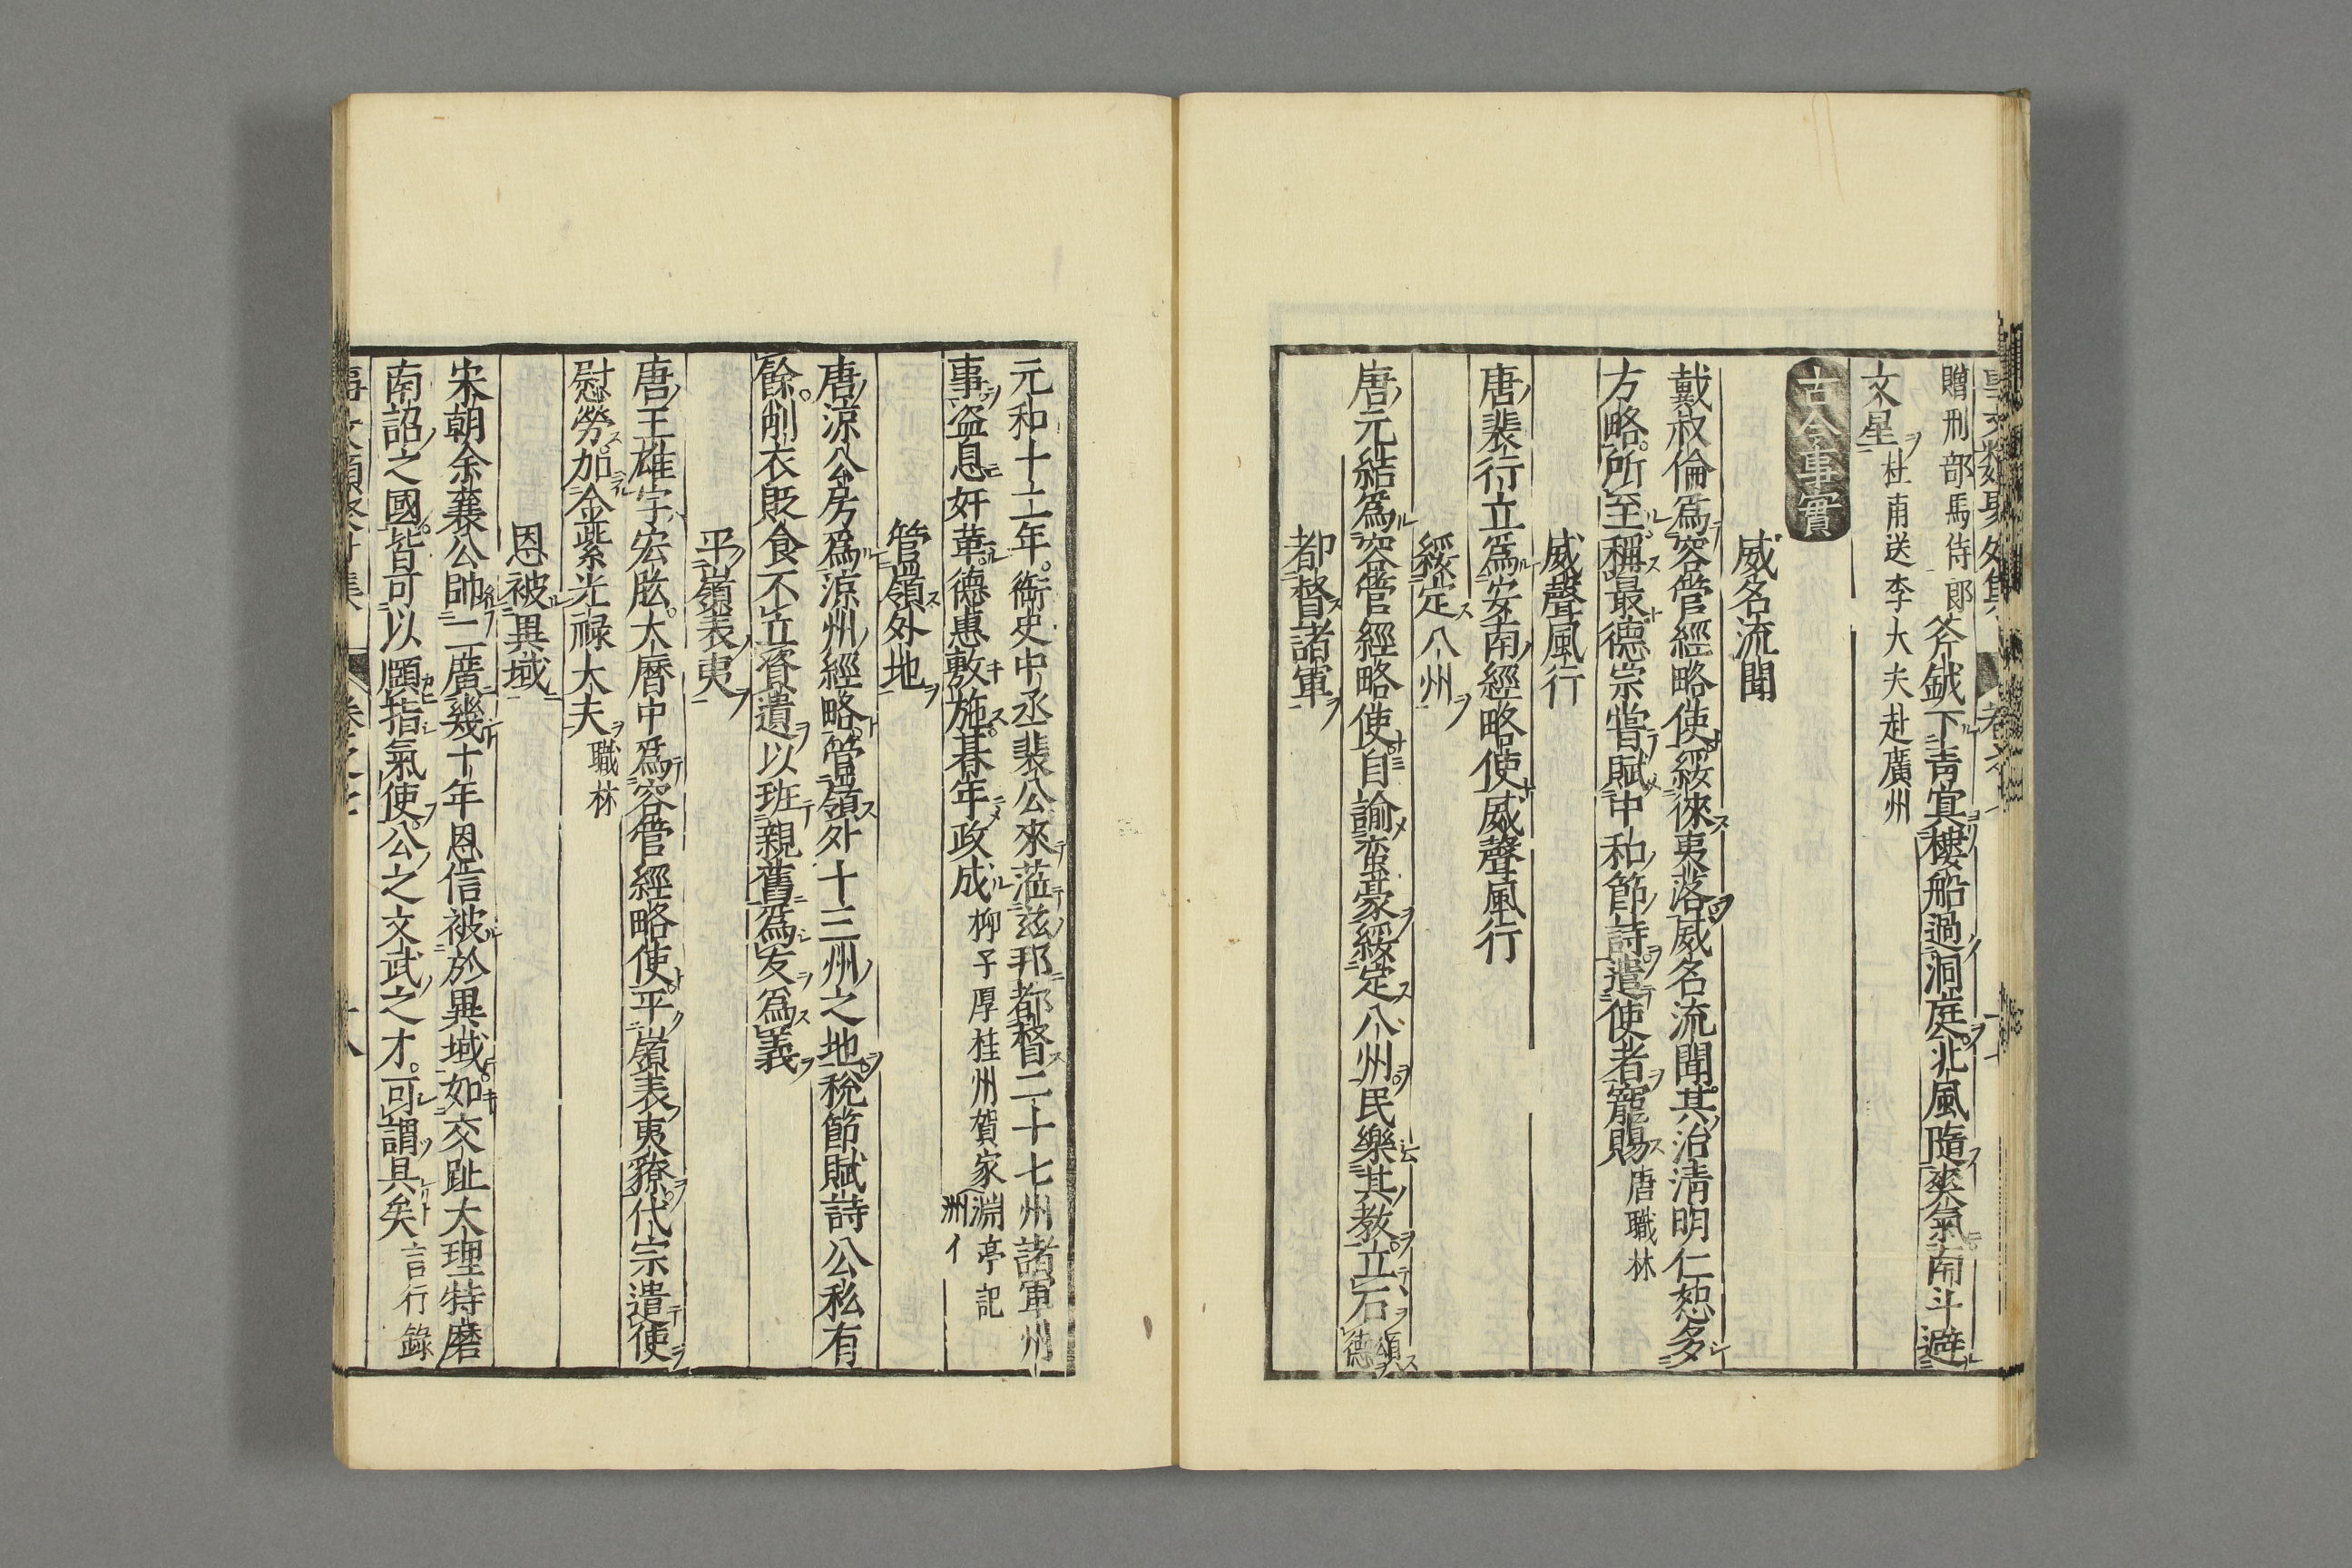 贈刑部馬侍郎斧鉞下青冥樓船過洞庭北風隨爽氣南斗避
文星杜甫送李大夫赴廣州
古今事實
威名流聞
戴叔倫爲容管經略使綏徠夷落威名流聞其治清明仁恕多
方略所至稱最德宗嘗賦中和節詩遣使者寵賜唐職林
威聲風行
唐裴行立爲安南經略使威聲風行
綏定八州
唐元結爲容管經略使自諭蛮豪綏定八州民樂其教立石頌德
都督諸軍
元和十二年御史中丞裴公來蒞兹邦都督二十七州諸軍州
事盗息奸革德惠敷施朞年政成柳子厚桂州賀家洲亭記
管嶺外地
唐凉公房爲凉州經略管嶺外十三州之地稅節賦詩公私有
餘削衣貶食不立資遺以班親舊爲友爲義
平嶺表夷
唐王雄字宏肱大曆中爲容管經略使平嶺表夷獠代宗遣使
慰勞加金紫光禄大夫職林
恩被異域
宋朝余襄公帥二廣幾十年恩信被於異域如交趾大理特磨
南詔之國皆可以頤指氣使公之文武之才可謂具矣言行錄